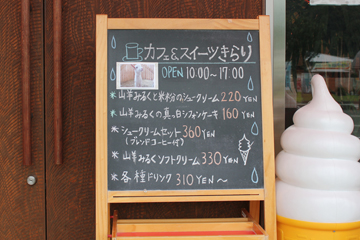 カフェ&スイーツきらり
OPEN 10:00~17:00
※山羊みるくと米粉のシュークリーム220YEN
※山羊みるくの真っ白シフォンケーキ160YEN
※シュークリームセット360YEN
(ブレンドコーヒー付)
※山羊みるくソフトクリーム330YEN
※各種ドリンク310YEN~